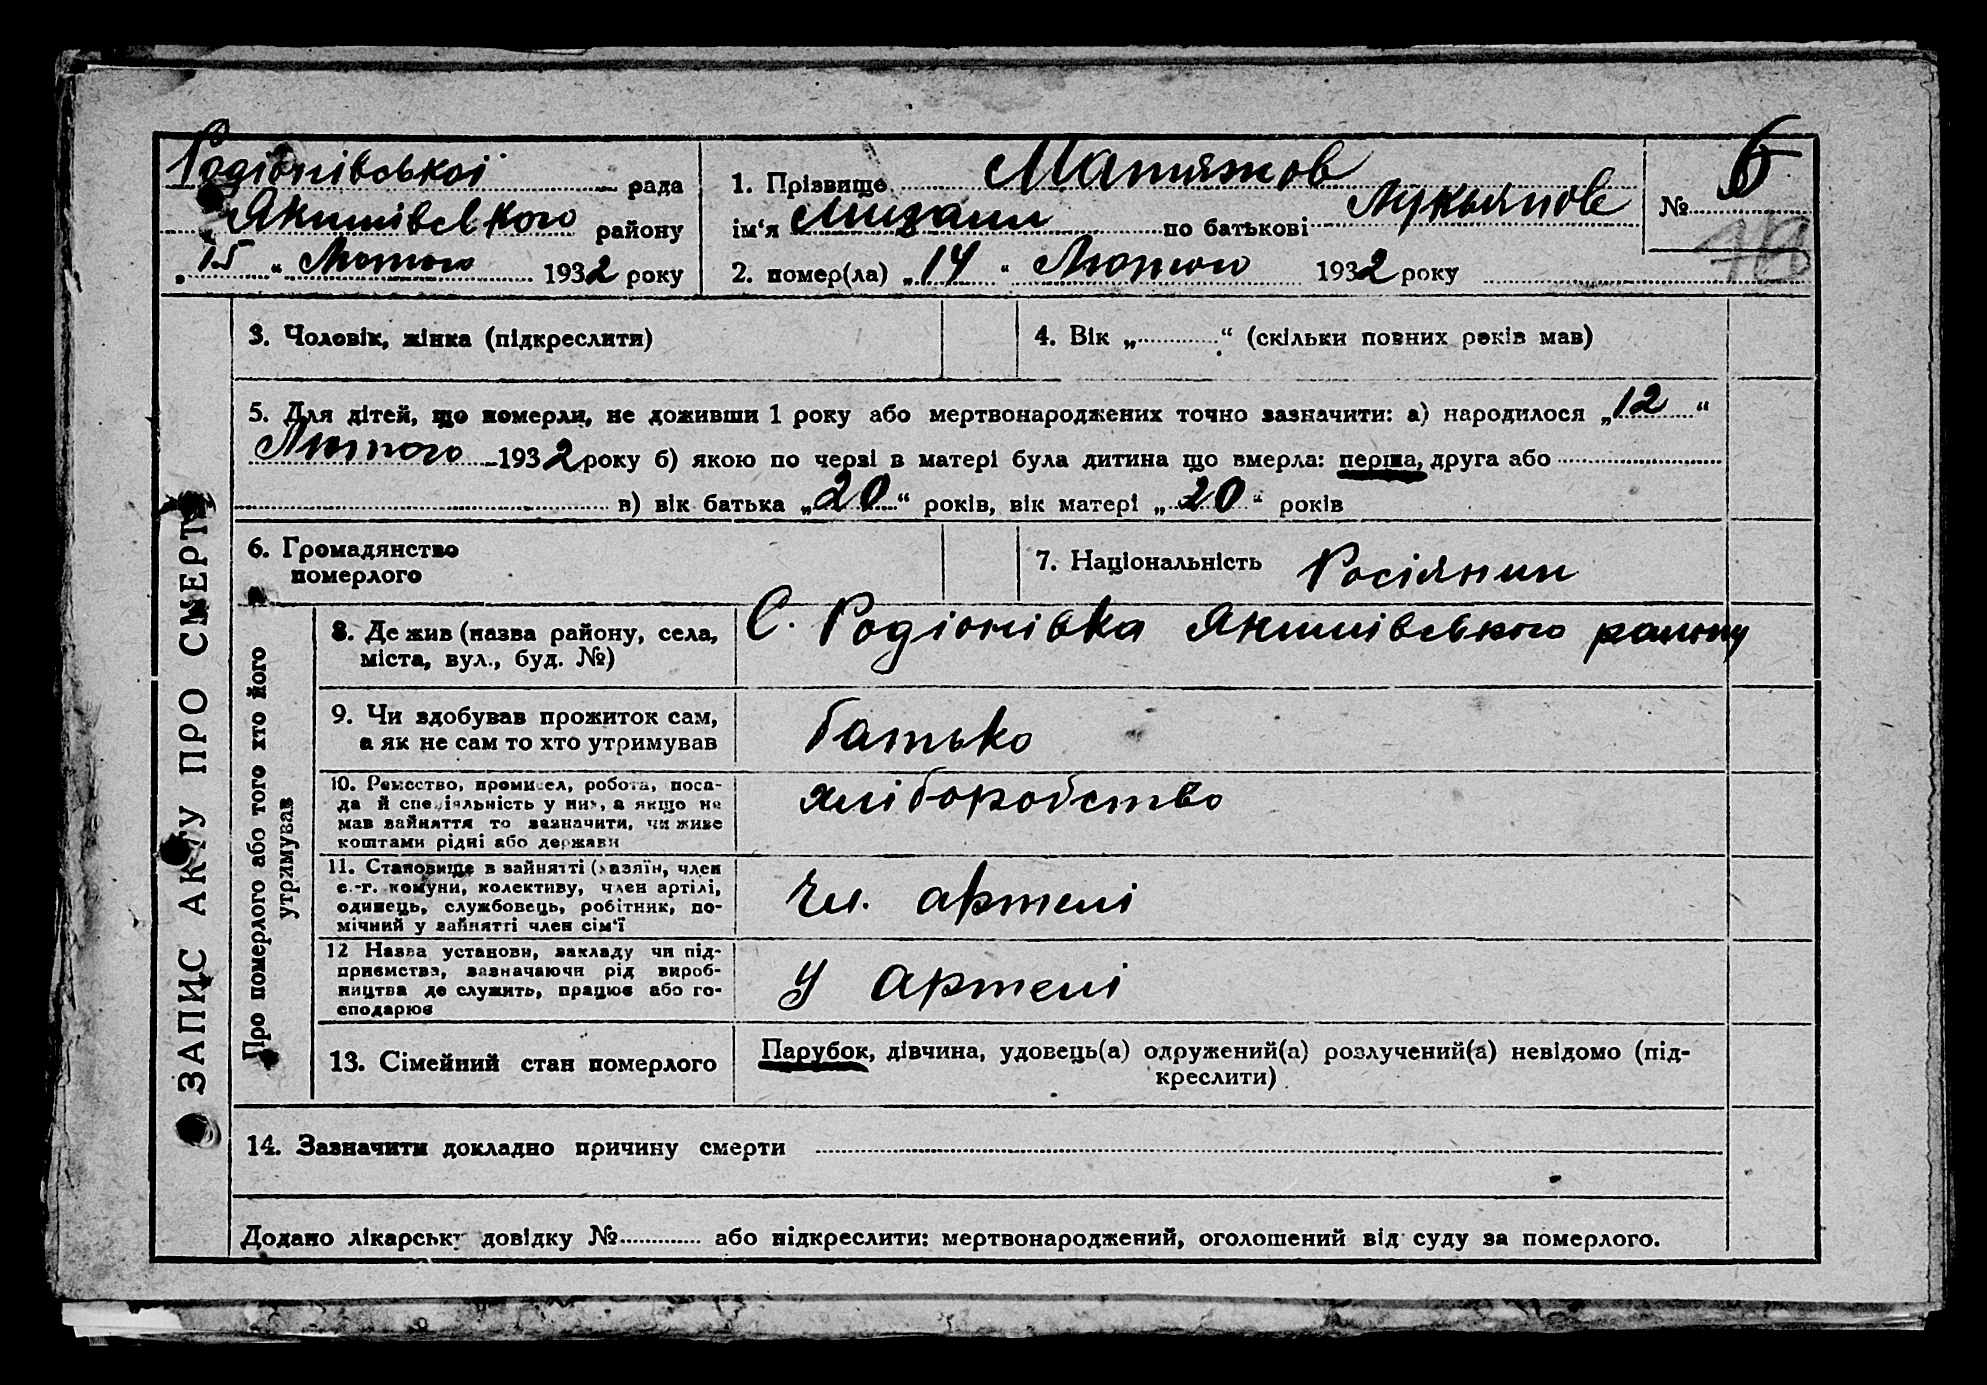 Родіонівської рада
Якимівського району
„15“ Лютого 1932 року
1. Прізвище Матяжов
ім'я по батькові Лукьянов
2. помер(ла) „14“ Лютого 1932 року
№ 6
3. Чоловік, жінка (підкреслити)
4. Вік „ “ (скільки повних років мав)
5. Для дітей, що померли, не доживши 1 року або мертвонароджених точно зазначити: а) народилося „12“
Лютого 1932 року б) якою по черзі в матері була дитина що вмерла: перша, друга або
в) вік батька „20“ років, вік матері „20“ років
6. Громадянство
померлого
7. Національність Росіянин
ЗАПИС АКТУ ПРО СМЕРТЬ
Про померлого або того хто його
утримував
8. Де жив (назва району, села,
міста, вул., буд. №)
С. Родіонівка Якимівського району
9. Чи здобував прожиток сам,
а як не сам то хто утримував
батько
10. Ремество, промисел, робота, поса-
да й спеціяльність у них, а якщо не
мав зайняття то зазначити, чи живе
коштами рідні або держави
хліборобство
11. Становище в зайнятті (хазяїн, член
с.-г. комуни, колективу, член артілі,
одинець, службовець, робітник, по-
мічний у зайнятті член сім'ї
Чл. артелі
12 Назва установи, закладу чи під-
приємства, зазначаючи рід вироб-
ництва де служить, працює або го-
сподарює
У артелі
13. Сімейний стан померлого
Парубок, дівчина, удовець(а) одружений(а) розлучений(а) невідомо (під-
креслити)
14. Зазначити докладно причину смерти
Додано лікарську довідку № або підкреслити: мертвонароджений, оголошений від суду за померлого.